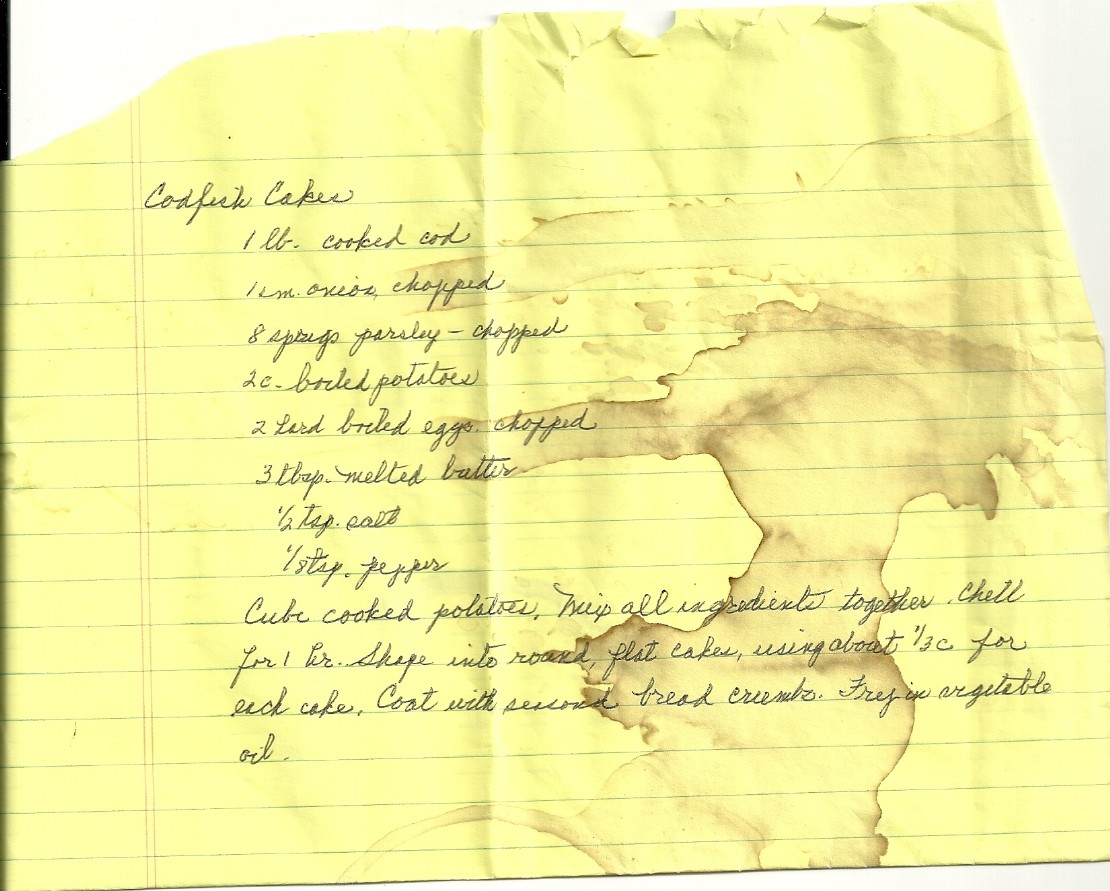 Codfish Cakes
1 lb. cooked cod
1 sm. onion, chopped
8 sprigs parsley - chopped
2 c. boiled potatoes
2 hard boiled eggs. chopped
3 tbsp. melted butter
1/2 tsp. salt
1/8 tsp. pepper
Cube cooked potatoes. Mix all ingredients together. Chill
for 1 hr. Shape into round, flat cakes, using about 1/3 c for
each cake. Coat with seasond bread crumbs. Fry in vegetable
oil.